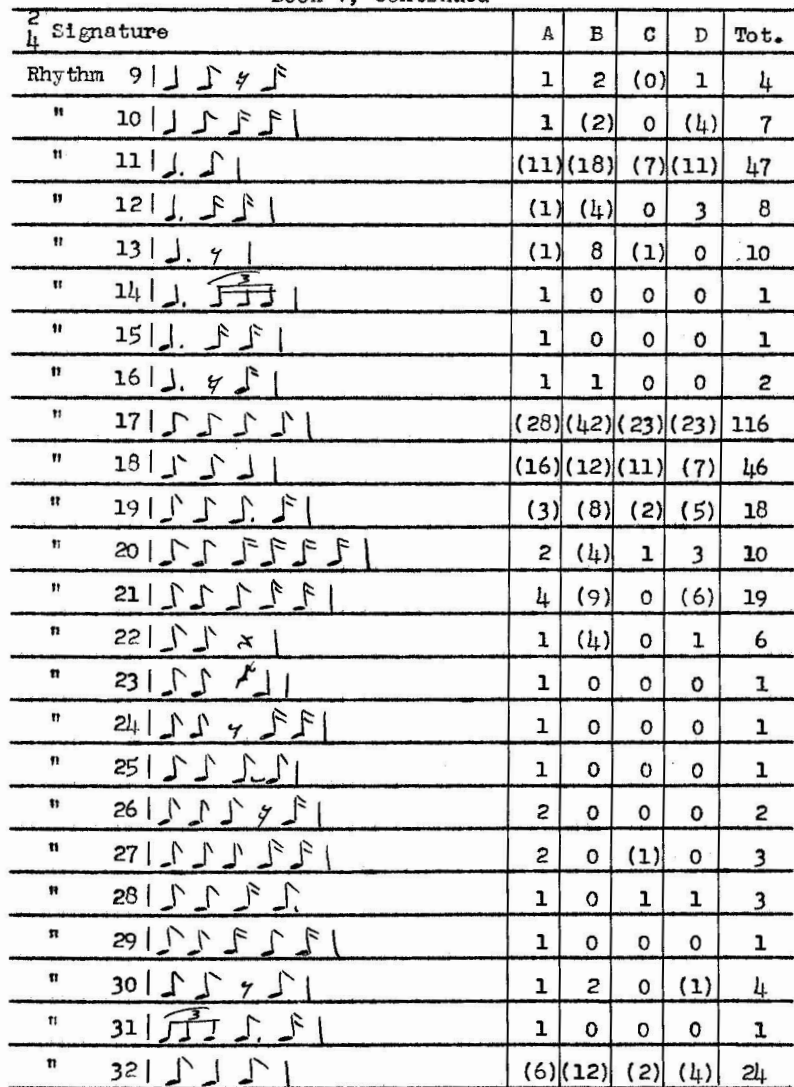 2
4 Signature A B C D Tot.
Rhythm 9 1 2 (0) 1 4
" 10 1 (2) 0 (4) 7
" 11 (11) (18) (7) (11) 47
" 12 (1) (4) 0 3 8
" 13 (1) 8 (1) 0 10
" 14 3 1 0 0 0 1
" 15 1 0 0 0 1
" 16 1 1 0 0 2
" 17 (28) (42) (23) (23) 116
" 18 (16) (12) (11) (7) 46
" 19 (3) (8) (2) (5) 18
" 20 2 (4) 1 3 10
" 21 4 (9) 0 (6) 19
" 22 1 (4) 0 1 6
" 23 1 0 0 0 1
" 24 1 0 0 0 1
" 25 1 0 0 0 1
" 26 2 0 0 0 2
" 27 2 0 (1) 0 3
" 28 1 0 1 1 3
" 29 1 0 0 0 1
" 30 1 2 0 (1) 4
" 31 3 1 0 0 0 1
" 32 (6) (12) (2) (4) 24